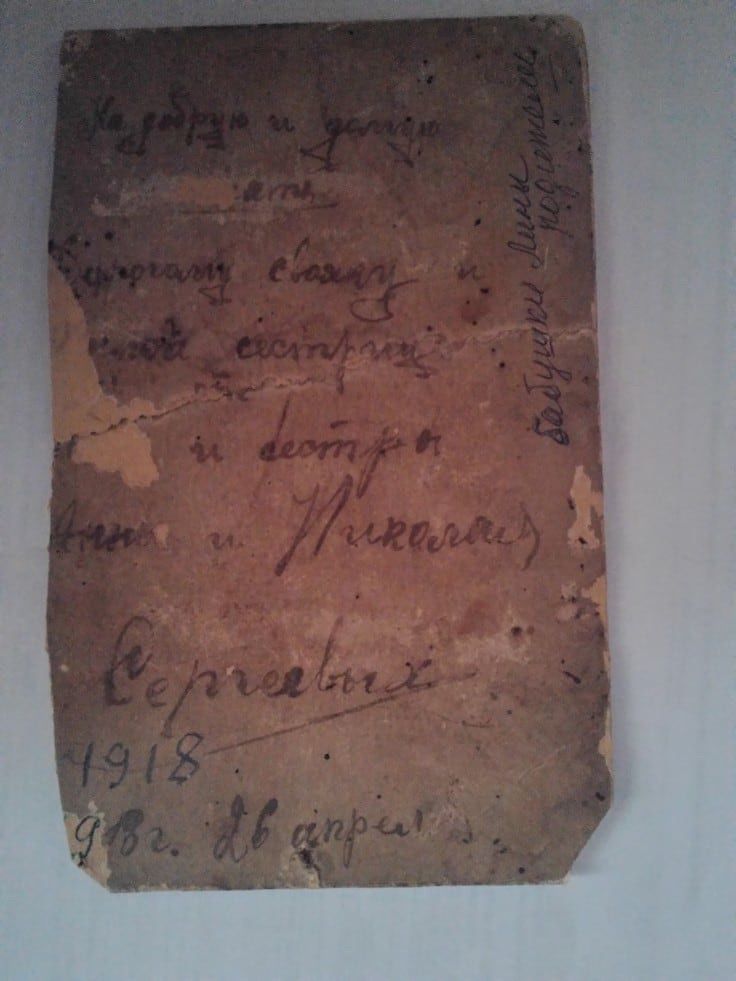 На добрую и долгую
ять
дорогому свояку и
ной сестрице
и сестры
Анны и Николая
Сергеевых
1918
918г. 26 апрел
бабушки Лины
родственники